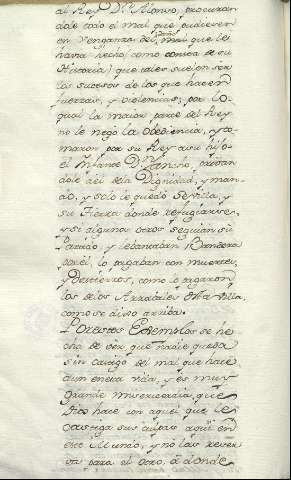 al Rey Dn. Alonso, procuran
dole todo el mal que pudieren
en Venganza del mal que les
havia hecho (como consta de su
Historia) que tales suelen ser
los sucesos de los que hacen
fuerzas, y violencias; por lo
qual la maior parte del Rey
no le negò la obediencia, y to
maron por su Rey a su hijo
el Infante Dn. Sancho, privan
dole asi de la Dignidad, y man
do, y solo le quedò Sevilla, y
su Tierra donde refugiarse,
y si algunos otros seguian su
Partido, y lebantaban Bandera
por él, lo pagaban con muertes,
y Destierros, como lo pagaron
los de los Arrabales de la Villa,
como se dixo arriba.
Por estos Exemplos se he
cha de ver que nadie queda
sin castigo del mal que hace
aun en esta vida, y es muy
grande misericordia, que
Dios hace con aquel que le
castiga sus culpas aqui en
este Mundo, y no las reser
va para el otro, à donde